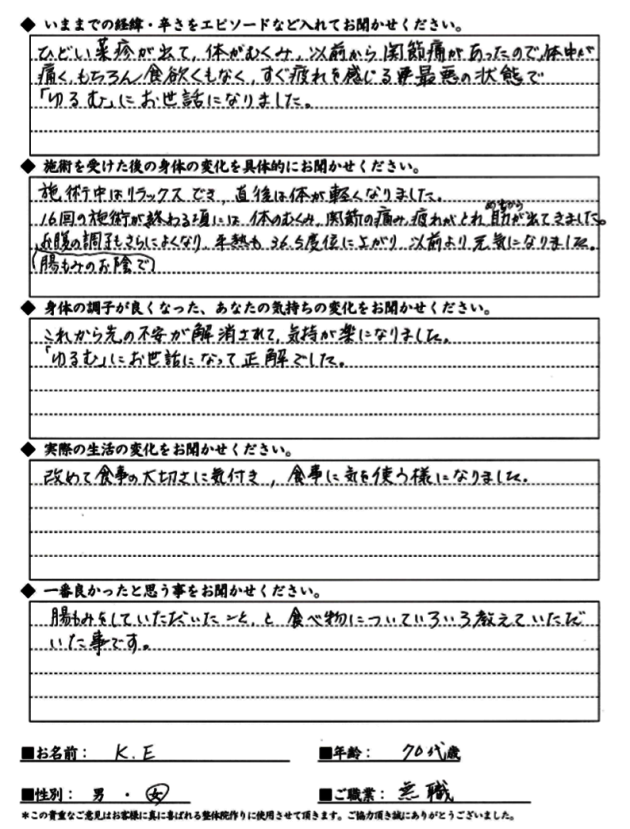 ◆ いままでの経緯・辛さをエピソードなど入れてお聞かせください。
ひどい薬疹が出て、体がむくみ、以前から関節痛があったので、体中が
痛く、もちろん食欲もなく、すぐ疲れを感じる最悪の状態で
「ゆるむ」にお世話になりました。
◆ 施術を受けた後の身体の変化を具体的にお聞かせください。
施術中はリラックスでき、直後は体が軽くなりました。
16回の施術が終わる頃には、体のむくみ、関節の痛み、疲れがとれ、筋が出てきました。
お腹の調子もさらによくなり、平熱も36.5度位に上がり、以前より元気になりました。
(腸もみのお陰で)
◆ 身体の調子が良くなった、あなたの気持ちの変化をお聞かせください。
これから先の不安が解消されて、気持が楽になりました。
「ゆるむ」にお世話になって正解でした。
◆ 実際の生活の変化をお聞かせください。
改めて食事の大切さに気付き、食事に気を使う様になりました。
◆ 一番良かったと思う事をお聞かせください。
腸もみをしていただいたこと、と食べ物についていろいろ教えていただ
いた事です。
■お名前： K.E ■年齢： 70代歳
■性別： 男 ・ 女 ■ご職業： 無職
＊この貴重なご意見はお客様に真に喜ばれる整体院作りに使用させて頂きます。ご協力頂き誠にありがとうございました。